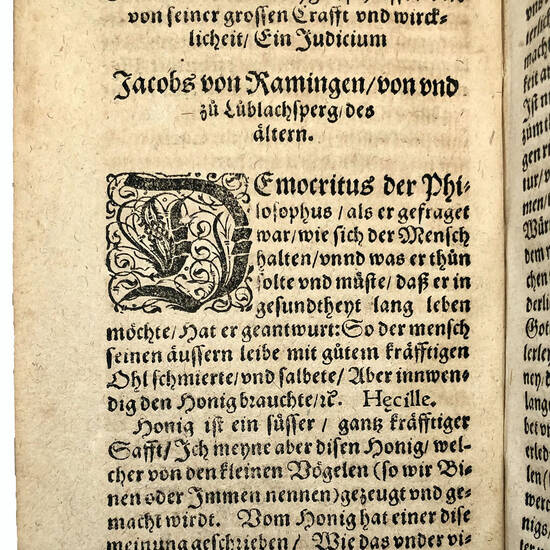 von seiner grossen Crafft vnd wirck-
licheit/ Ein Judicium
Jacobs von Ramingen/ von vnd
zů Lüblachsperg/ des
ältern.
DEmocritus der Phi-
losophus / als er gefraget
war/ wie sich der Mensch
halten/ vnnd was er thůn
solte vnd müste/ daß er in
gesundtheyt lang leben
möchte/ Hat er geantwurt: So der mensch
seinen äussern leibe mit gůtem kräfftigen
Ohl schmierte/ vnd salbete/ Aber innwen-
dig den Honig brauchte/ ꝛc. Hęcille.
Honig ist ein süsser / gantz kräfftiger
Safft/ Ich meyne aber disen Honig/ wel-
cher von den kleinen Vögelen (so wir Bi-
nen oder Immen nennen) gezeugt vnd ge-
macht wirdt. Vom Honig hat einer dise
meinung geschrieben / Wie das vnder vi-